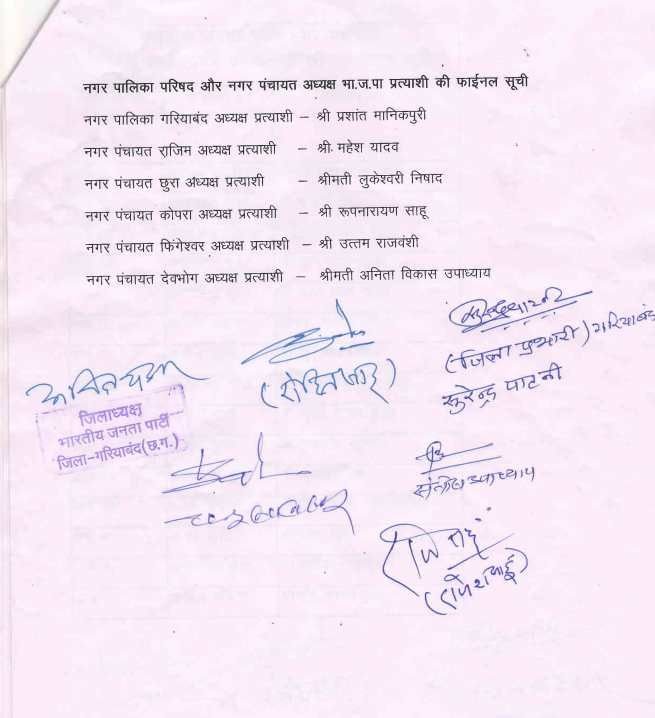 नगर पालिका परिषद और नगर पंचायत अध्यक्ष भा.ज.पा प्रत्याशी की फाईनल सूची
नगर पालिका गरियाबंद अध्यक्ष प्रत्याशी – श्री प्रशांत मानिकपुरी
नगर पंचायत राजिम अध्यक्ष प्रत्याशी – श्री महेश यादव
नगर पंचायत छुरा अध्यक्ष प्रत्याशी – श्रीमती लुकेश्वरी निषाद
नगर पंचायत कोपरा अध्यक्ष प्रत्याशी – श्री रूपनारायण साहू
नगर पंचायत फिंगेश्वर अध्यक्ष प्रत्याशी – श्री उत्तम राजवंशी
नगर पंचायत देवभोग अध्यक्ष प्रत्याशी – श्रीमती अनिता विकास उपाध्याय
(जिला प्रभारी) गरियाबंद
सुरेन्द्र पाटनी
जिलाध्यक्ष
भारतीय जनता पार्टी
जिला-गरियाबंद (छ.ग.)
उपाध्याय